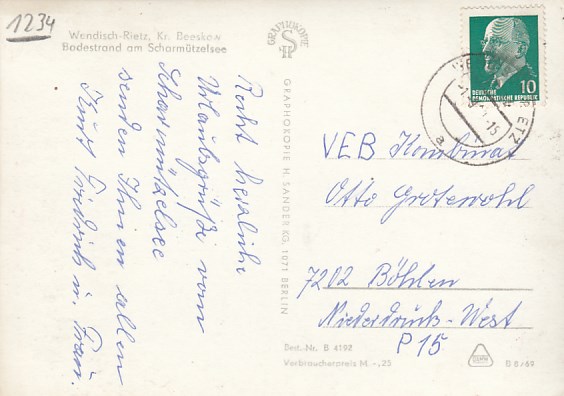 1234
Wendisch-Rietz, Kr. Beeskow
Badestrand am Scharmützelsee
GRAPHOKOPIE
GRAPHOKOPIE H. SANDER KG, 1071 BERLIN
Recht herzliche
Urlaubsgrüße vom
Scharmützelsee
senden Ihnen allen
Kurt Friedrich u. Frau.
DEUTSCHE
DEMOKRATISCHE REPUBLIK
10
VEB Kombinat
Otto Grotewohl
7202 Böhlen
Niederdruck-West
P 15
Best.-Nr. B 4192
Verbraucherpreis M -,25
B 8/69